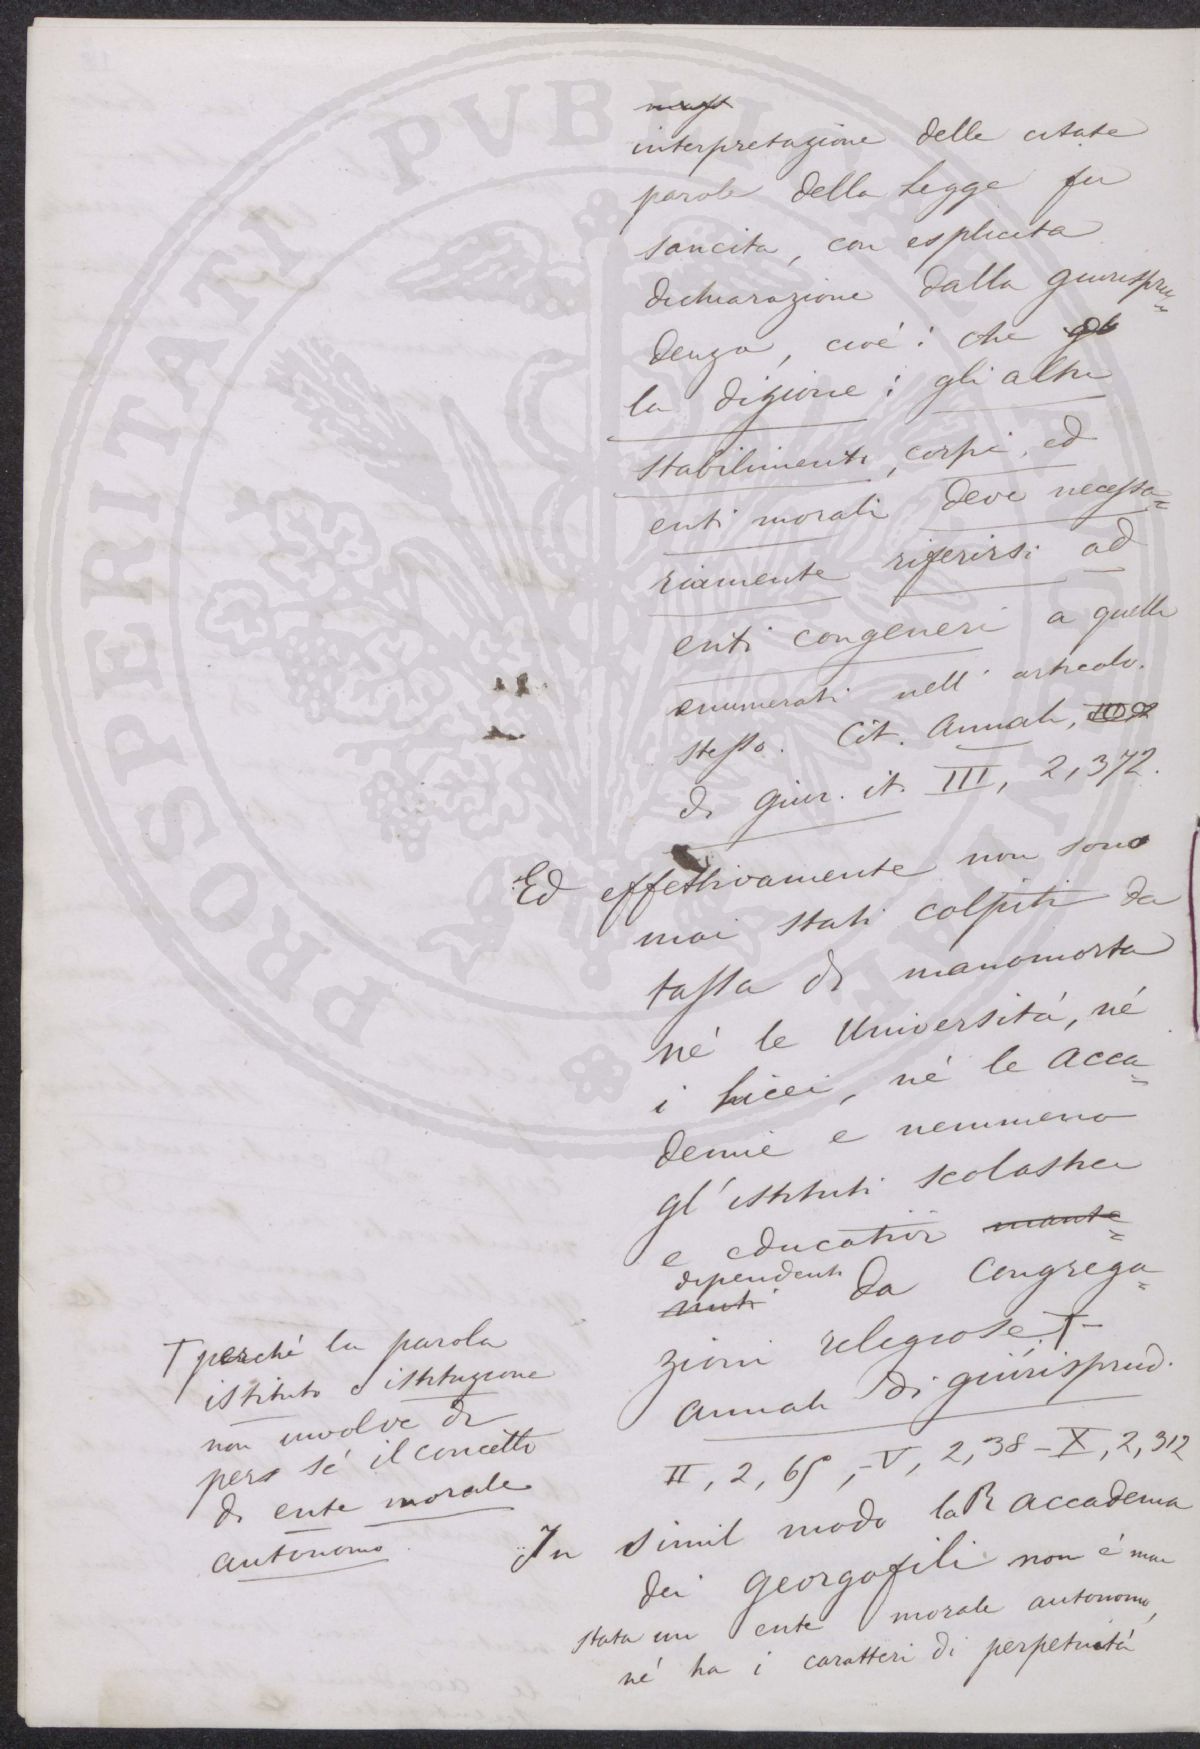 interpretazione delle citate
parole della Legge fu
sancita, con esplicita
dichiarazione dalla giurispru=
denza, cioè: che gli
la dizione: gli altri
stabilimenti, corpi, ed
enti morali deve necessa=
riamente riferirsi ad
enti congeneri a quelli
enumerati nell'articolo
stesso. Cit. Annali,
di giur. it. III, 2, 372.
Ed effettivamente non sono
mai stati colpiti da
tassa di manomorta
nè le Università, nè
i Licei, nè le Acca=
demie e nemmeno
gl'istituti scolastici
e educativi mante=
dipendenti
nuti da Congrega=
zioni religiose T
Annali di giurisprud.
II, 2, 65, - V, 2, 38 - X, 2, 312
In simil modo la R Accademia
dei Georgofili non è mai
stata un ente morale autonomo,
nè ha i caratteri di perpetuità
T perchè la parola
istituto o istituzione
non involve di
pers sè il concetto
di ente morale
autonomo.
PROSPERITATI PVBLICAE AVGENDAE